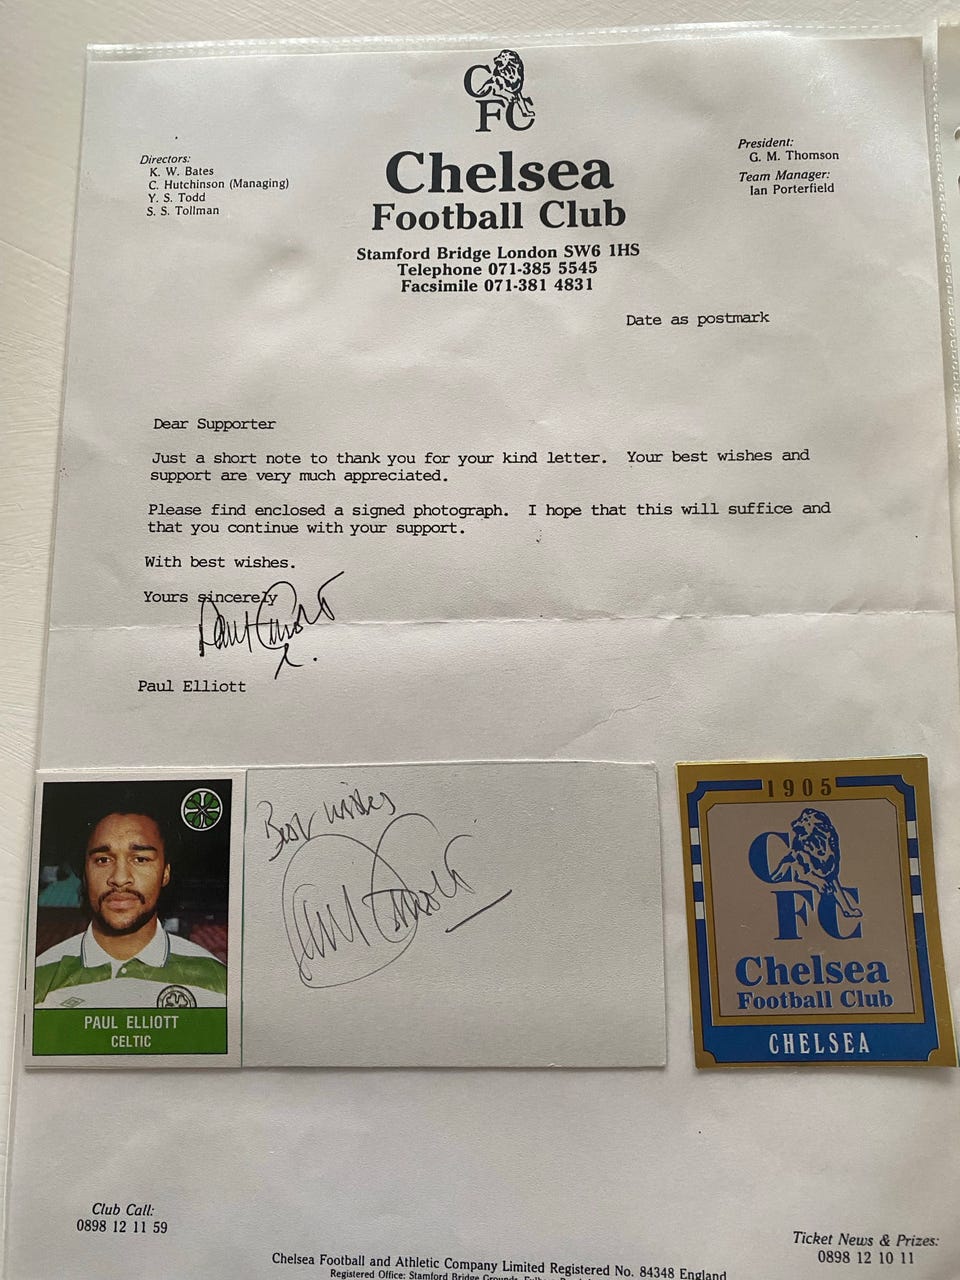 CFC
Directors:
K. W. Bates
C. Hutchinson (Managing)
Y. S. Todd
S. S. Tollman
Chelsea
Football Club
Stamford Bridge London SW6 1HS
Telephone 071-385 5545
Facsimile 071-381 4831
President:
G. M. Thomson
Team Manager:
Ian Porterfield
Date as postmark
Dear Supporter
Just a short note to thank you for your kind letter. Your best wishes and
support are very much appreciated.
Please find enclosed a signed photograph. I hope that this will suffice and
that you continue with your support.
With best wishes.
Yours sincerely
Paul Elliott
Paul Elliott
PAUL ELLIOTT
CELTIC
Best wishes
Paul Elliott
1905
CFC
Chelsea
Football Club
CHELSEA
Club Call:
0898 12 11 59
Ticket News & Prizes:
0898 12 10 11
Chelsea Football and Athletic Company Limited Registered No. 84348 England
Registered Office: Stamford Bridge Grounds,